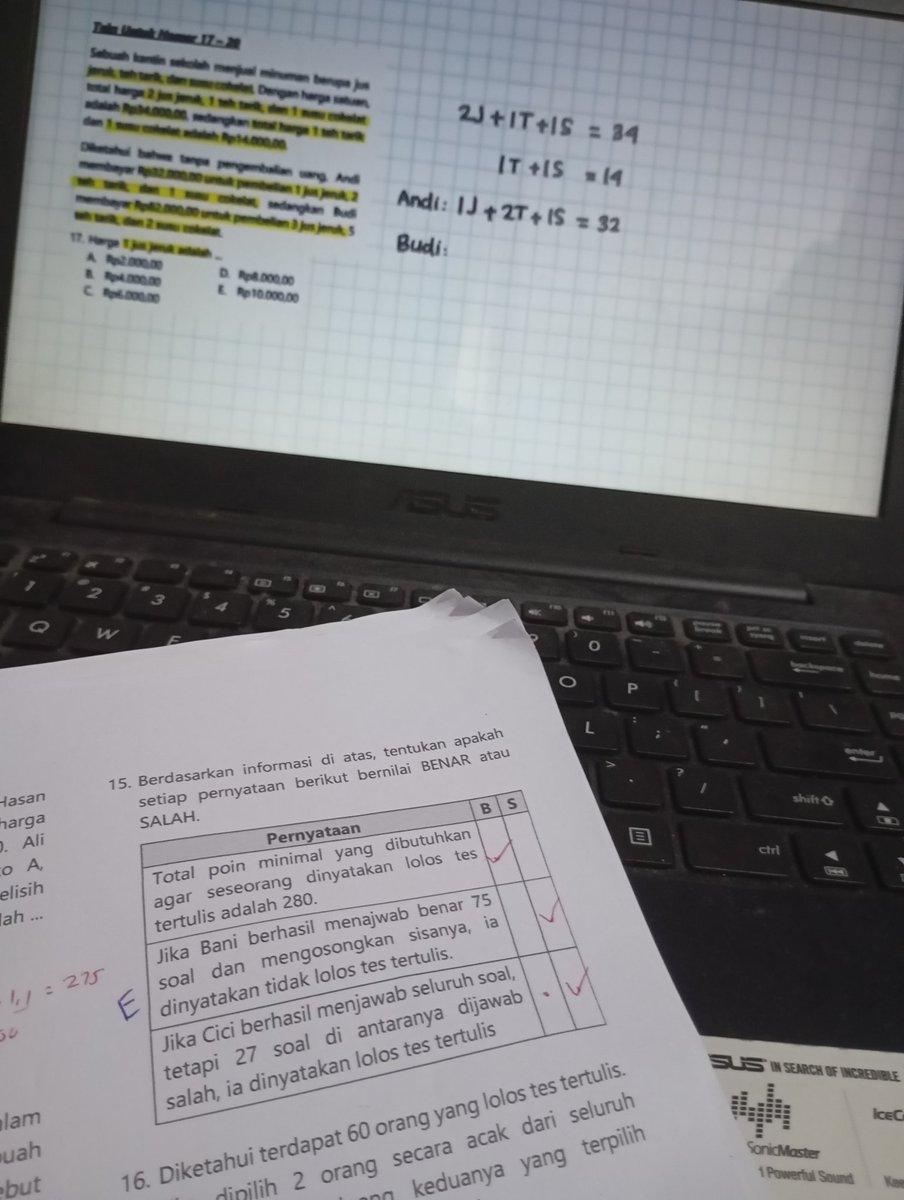 Teks Untuk Nomor 17 – 20
Sebuah kantin sekolah menjual minuman berupa jus
jeruk, teh tarik, dan susu cokelat. Dengan harga satuan,
total harga 2 jus jeruk, 1 teh tarik, dan 1 susu cokelat
adalah Rp34.000,00, sedangkan total harga 1 teh tarik
dan 1 susu cokelat adalah Rp14.000,00.
Diketahui bahwa tanpa pengembalian uang, Andi
membayar Rp32.000,00 untuk pembelian 1 jus jeruk, 2
teh tarik, dan 1 susu cokelat, sedangkan Budi
membayar Rp82.000,00 untuk pembelian 3 jus jeruk, 5
teh tarik, dan 2 susu cokelat.
17. Harga 1 jus jeruk adalah ...
A. Rp2.000,00
B. Rp4.000,00
C. Rp6.000,00
D. Rp8.000,00
E. Rp10.000,00
2J + 1T + 1S = 34
1T + 1S = 14
Andi: 1J + 2T + 1S = 32
Budi:
ASUS
1 2 3 4 5
Q W E
0
O P
L
backspace
home
enter
shift
ctrl
Hasan
harga
Ali
o A,
elisih
lah ...
= 275
alam
buah
ebut
15. Berdasarkan informasi di atas, tentukan apakah
setiap pernyataan berikut bernilai BENAR atau
SALAH.
Pernyataan B S
Total poin minimal yang dibutuhkan
agar seseorang dinyatakan lolos tes
tertulis adalah 280.
Jika Bani berhasil menajwab benar 75
soal dan mengosongkan sisanya, ia
dinyatakan tidak lolos tes tertulis.
E
Jika Cici berhasil menjawab seluruh soal,
tetapi 27 soal di antaranya dijawab
salah, ia dinyatakan lolos tes tertulis
16. Diketahui terdapat 60 orang yang lolos tes tertulis.
dipilih 2 orang secara acak dari seluruh
keduanya yang terpilih
SUS IN SEARCH OF INCREDIBLE
SonicMaster
1 Powerful Sound
IceC